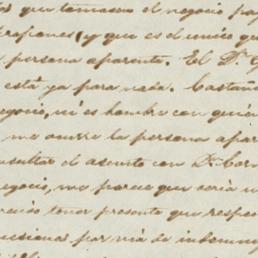 que tomasen el negocio por
(y que es el unico que
persona aparente. El Dr
está ya para nada. Castañ
negocio, ni es hombre con quién
me ocurre la persona apar
consultar el asunto con Dn. Cor
negocio, me parece que seria u
tener presente que respec
por via de indemn